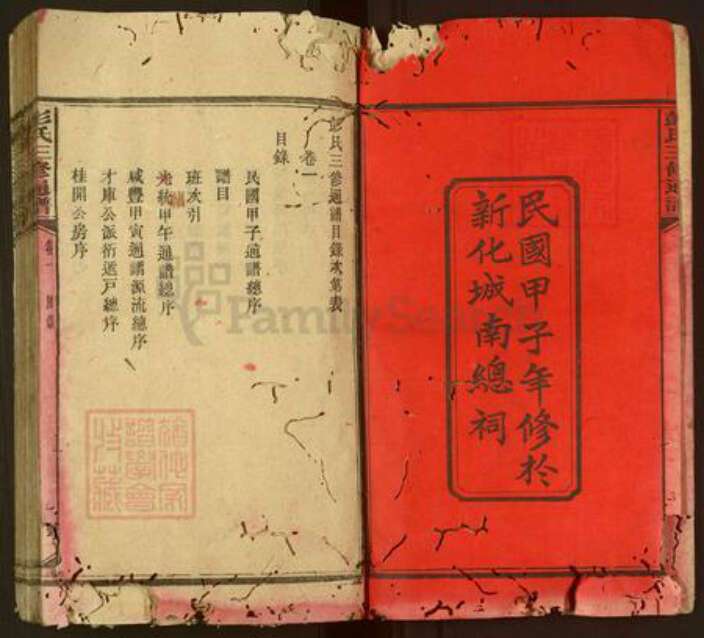 民國甲子年修於
新化城南總祠
彭氏三修通譜目錄次第表
卷一
目錄
民國甲子通譜總序
譜目
班次引
光緒甲午通譜總序
咸豐甲寅通譜源流總序
才庫公派衍遞戶總序
桂開公房序
彭氏三修通譜
卷一
FamilySearch